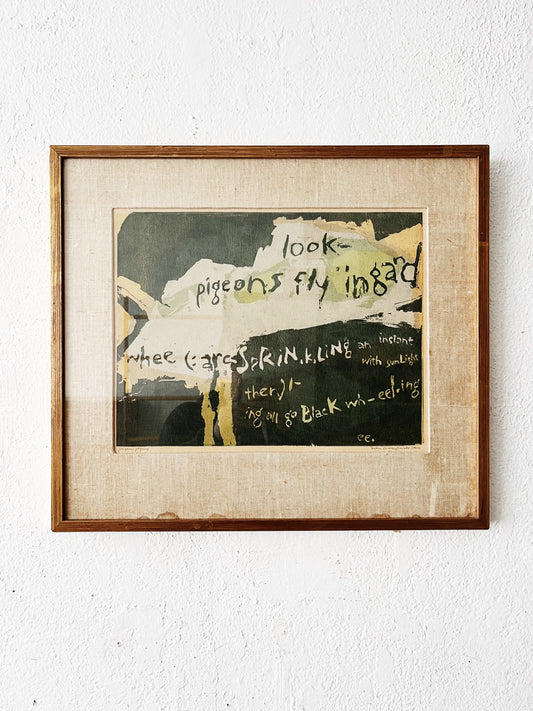 look-
pigeons fly ingand
whee(:are,SpRiN,k,LiNg an instant
with sunLight
then)l-
ing all go BlacK wh-eel-ing
ee.